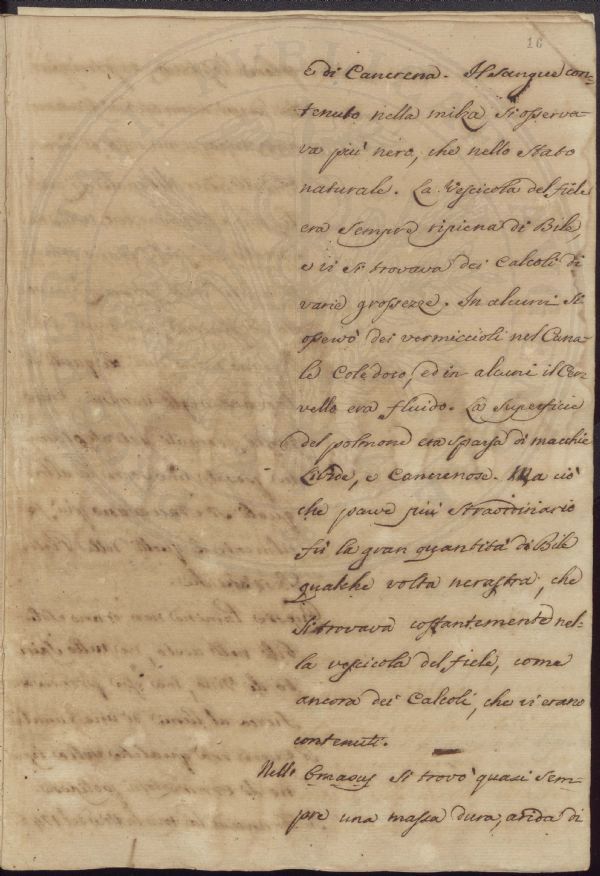 16
e di Cancrena. Il sangue con=
tenuto nella milza si osserva-
va più nero, che nello stato
naturale. La Vescicola del fiele
era sempre ripiena di Bile,
e vi si trovava dei Calcoli di
varie grossezze. In alcuni si
osservò dei vermiccioli nel Cana-
le Coledoco, ed in alcuni il Cer-
vello era fluido. La superficie
del polmone era sparsa di macchie
Livide, e Cancrenose. Ma ciò
che parve più straordinario
fù la gran quantità di Bile
qualche volta nerastra, che
si trovava costantemente nel-
la vescicola del fiele, come
ancora dei Calcoli, che vi erano
contenuti.
Nello Omasus si trovò quasi sem-
pre una massa dura, arida di